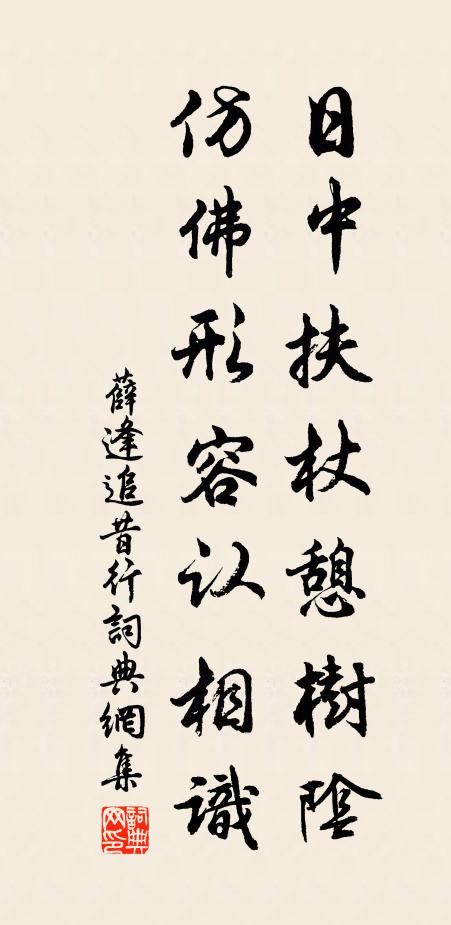 日中扶杖憩樹陰
仿佛形容认相識
薛逢追昔行詞典網集
詞典
网印